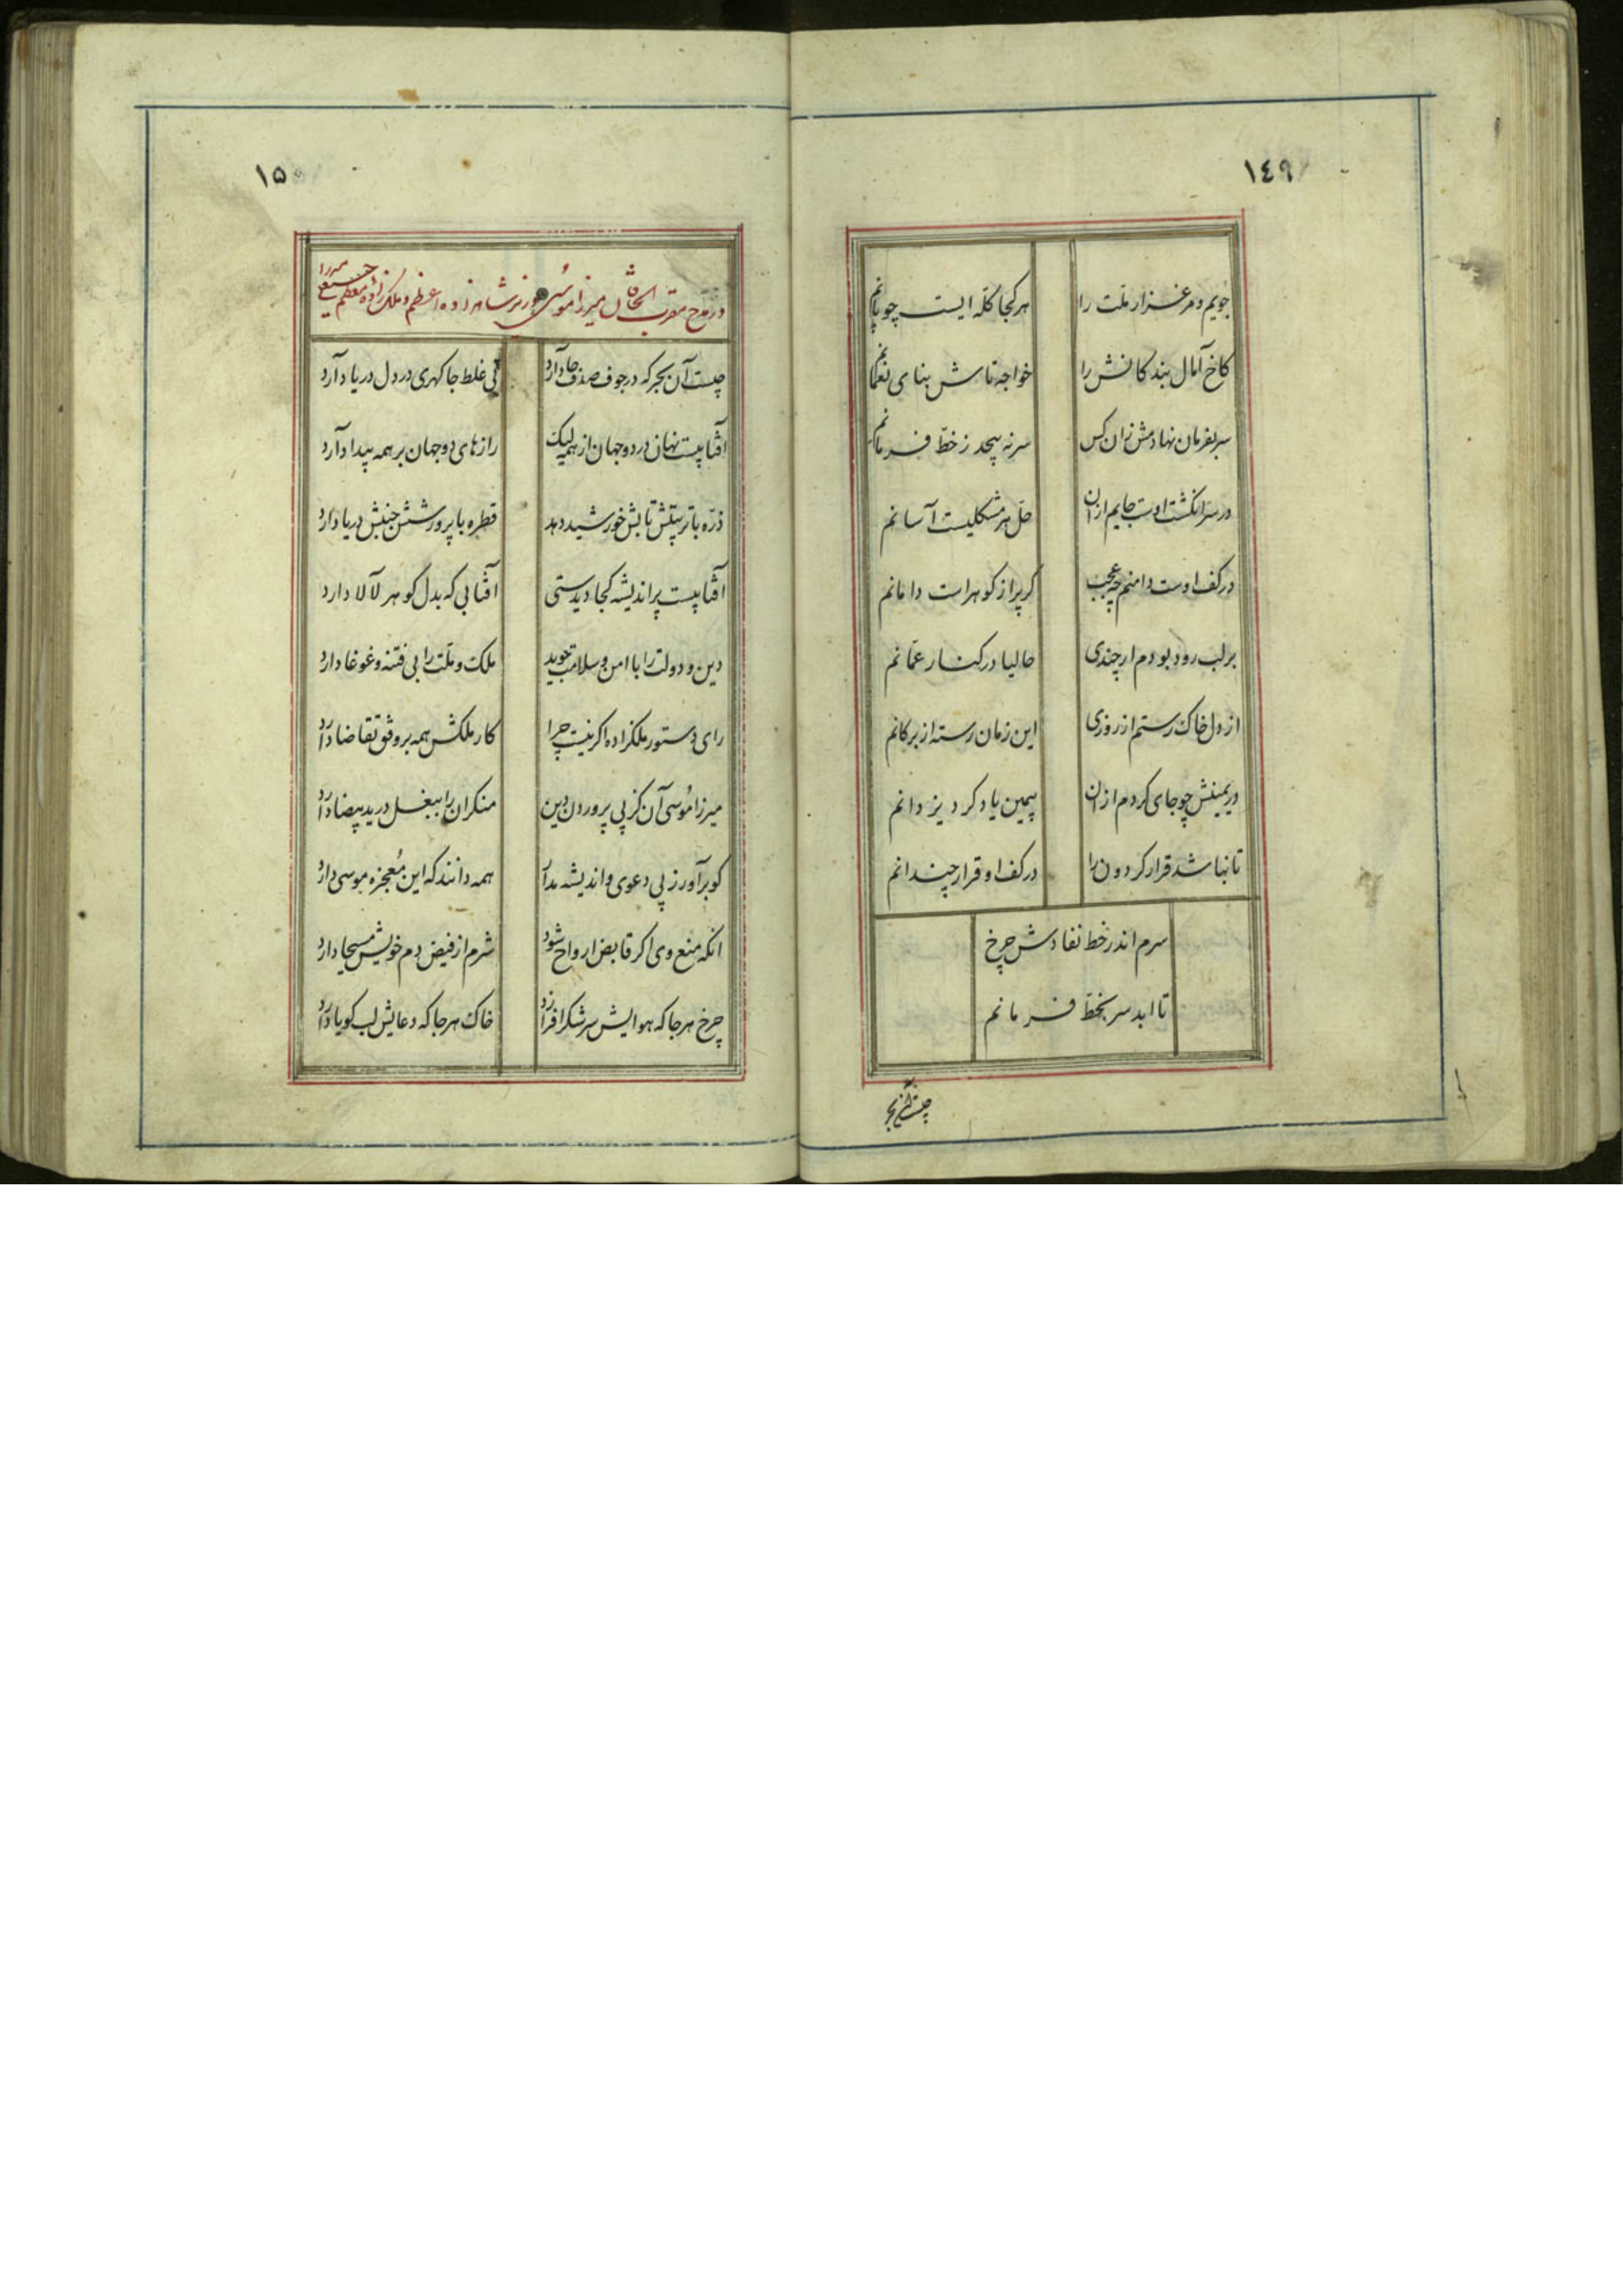 ١٤٩
جویم و مرغزار ملّت را هر کجا کلّه ایست چوپانم
کاخ آمال بندکانش را خواجه تاش بنای نعمانم
سر بفرمان نهادمش زان کس سر نه پیچد ز خطّ فرمانم
در سر انکشت اوست جایم از آن حلّ هر مشکلیست آسانم
در کف اوست دامنم چه عجب کر پر از کوهر است دامانم
بر لب رود بودم ار چندی حالیا در کنار عمّانم
از دل خاک رستم ار روزی این زمان رسته از بر کانم
در یمینش چو جای کردم از آن بیمین یاد کرد یزدانم
تا نباشد قرار کردون را در کف او قرار چندانم
سرم اندر خط نفادش چرخ
تا ابد سر بخطّ فرمانم
چیست آن بحر
١٥٠
در مدح مقرب الخاقان میرزا موسُی وزیر شاهزاده اعظم و ملکزاده معظم میرزا
چیست آن بحر که در جوف صدف جا دارد نی غلط جا کهری در دل دریا دارد
آفتابیست نهان در دو جهان از همه لیک رازهای دو جهان بر همه پیدا دارد
ذرّه با تربیتش تابش خورشید دهد قطره با پرورشش جنبش دریا دارد
آفتابیست پر اندیشه کجا دیدستی آفتابی که بدل کوهر لآلا دارد
دین و دولت را با امن و سلامت جوید ملک و ملّت را بی فتنه و غوغا دارد
رای دستور ملکزاده اکر نیست چرا کار ملکش همه بر وفق تقاضا دارد
میرزا مُوسی آن کز پی پروردن دین منکران را ببغل در ید بیضا دارد
کو برآور ز پی دعوی و اندیشه مدار همه دانند که این مُعجزه موسی دارد
انکه منع وی اکر قابض ارواح شود شرم از فیض دم خویش مسیحا دارد
چرخ هر جا که هوایش سر شکر افرازد خاک هر جا که دعایش لب کویا دارد